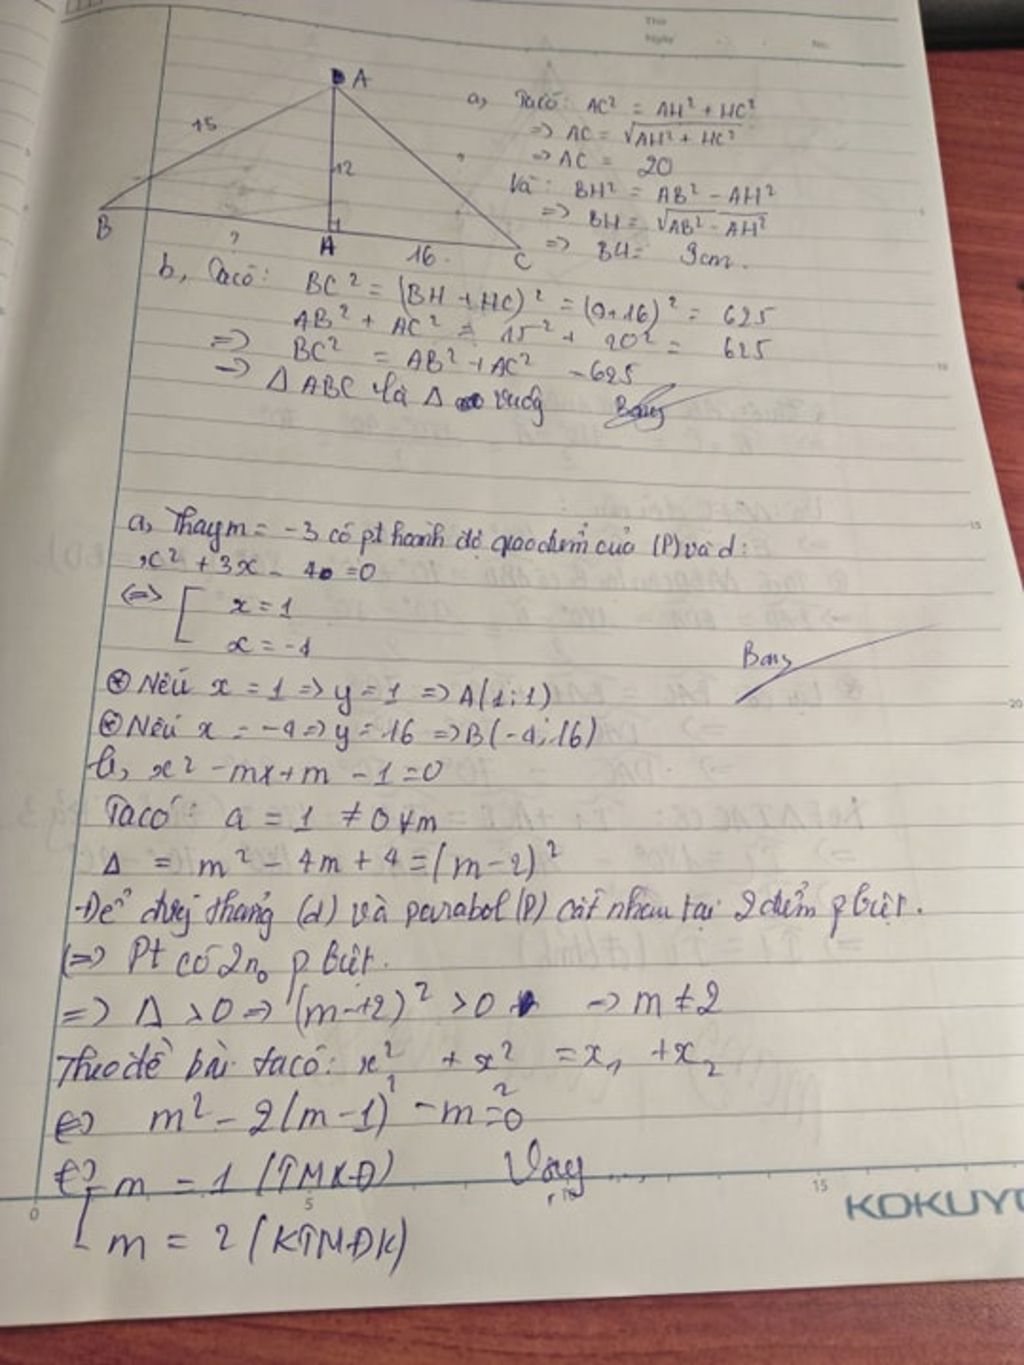 Thứ
Ngày No.
A
15
12
B
?
H
16
C
a, Ta có: AC² = AH² + HC²
=> AC = √AH² + HC²
=> AC = 20
Và: BH² = AB² - AH²
=> BH = √AB² - AH²
=> BH = 9cm.
b, Ta có: BC² = (BH + HC)² = (9+16)² = 625
AB² + AC² = 15² + 20² = 625
=> BC² = AB² + AC² = 625
=> Δ ABC là Δ vuông
a, Thay m = -3 có pt hoành độ giao điểm của (P) và d:
x² + 3x - 4 = 0
<=> [ x = 1
x = -4
⊛ Nếu x = 1 => y = 1 => A(1;1)
⊛ Nếu x = -4 => y = 16 => B(-4;16)
b, x² - mx + m - 1 = 0
Ta có: a = 1 ≠ 0 ∀m
Δ = m² - 4m + 4 = (m-2)²
-Để đường thẳng (d) và parabol (P) cắt nhau tại 2 điểm p biệt.
<=> Pt có 2 n₀ p biệt.
=> Δ > 0 => (m-2)² > 0 => m ≠ 2
Theo đề bài ta có: x₁² + x₂² = x₁ + x₂
<=> m² - 2(m-1) - m = 0
<=> [ m = 1 (TMKĐ)
m = 2 (KTMĐK)
Vậy ...
0 5 10 15
KOKUYO